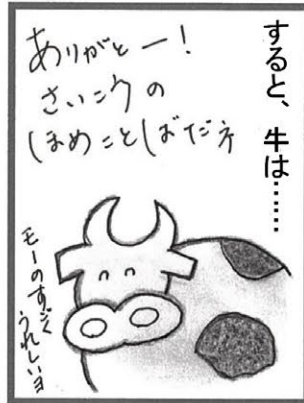 すると、牛は……
ありがとー！
さいこうの
ほめことばだネ
モーのすごく
うれしいヨ